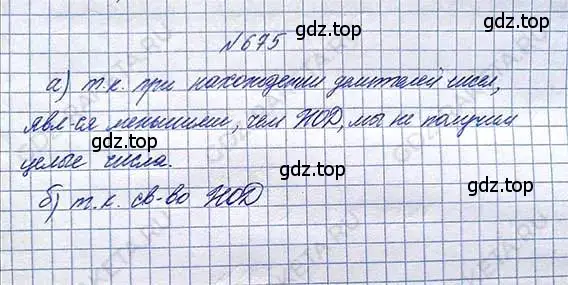 gdz.top
№675
gdz.top
а) т.к. при нахождении делителей чисел,
явл-ся меньшими, чем НОД, мы не получим
целые числа.
gdz.top
gdz.top
б) т.к. св-во НОД
gdz.top